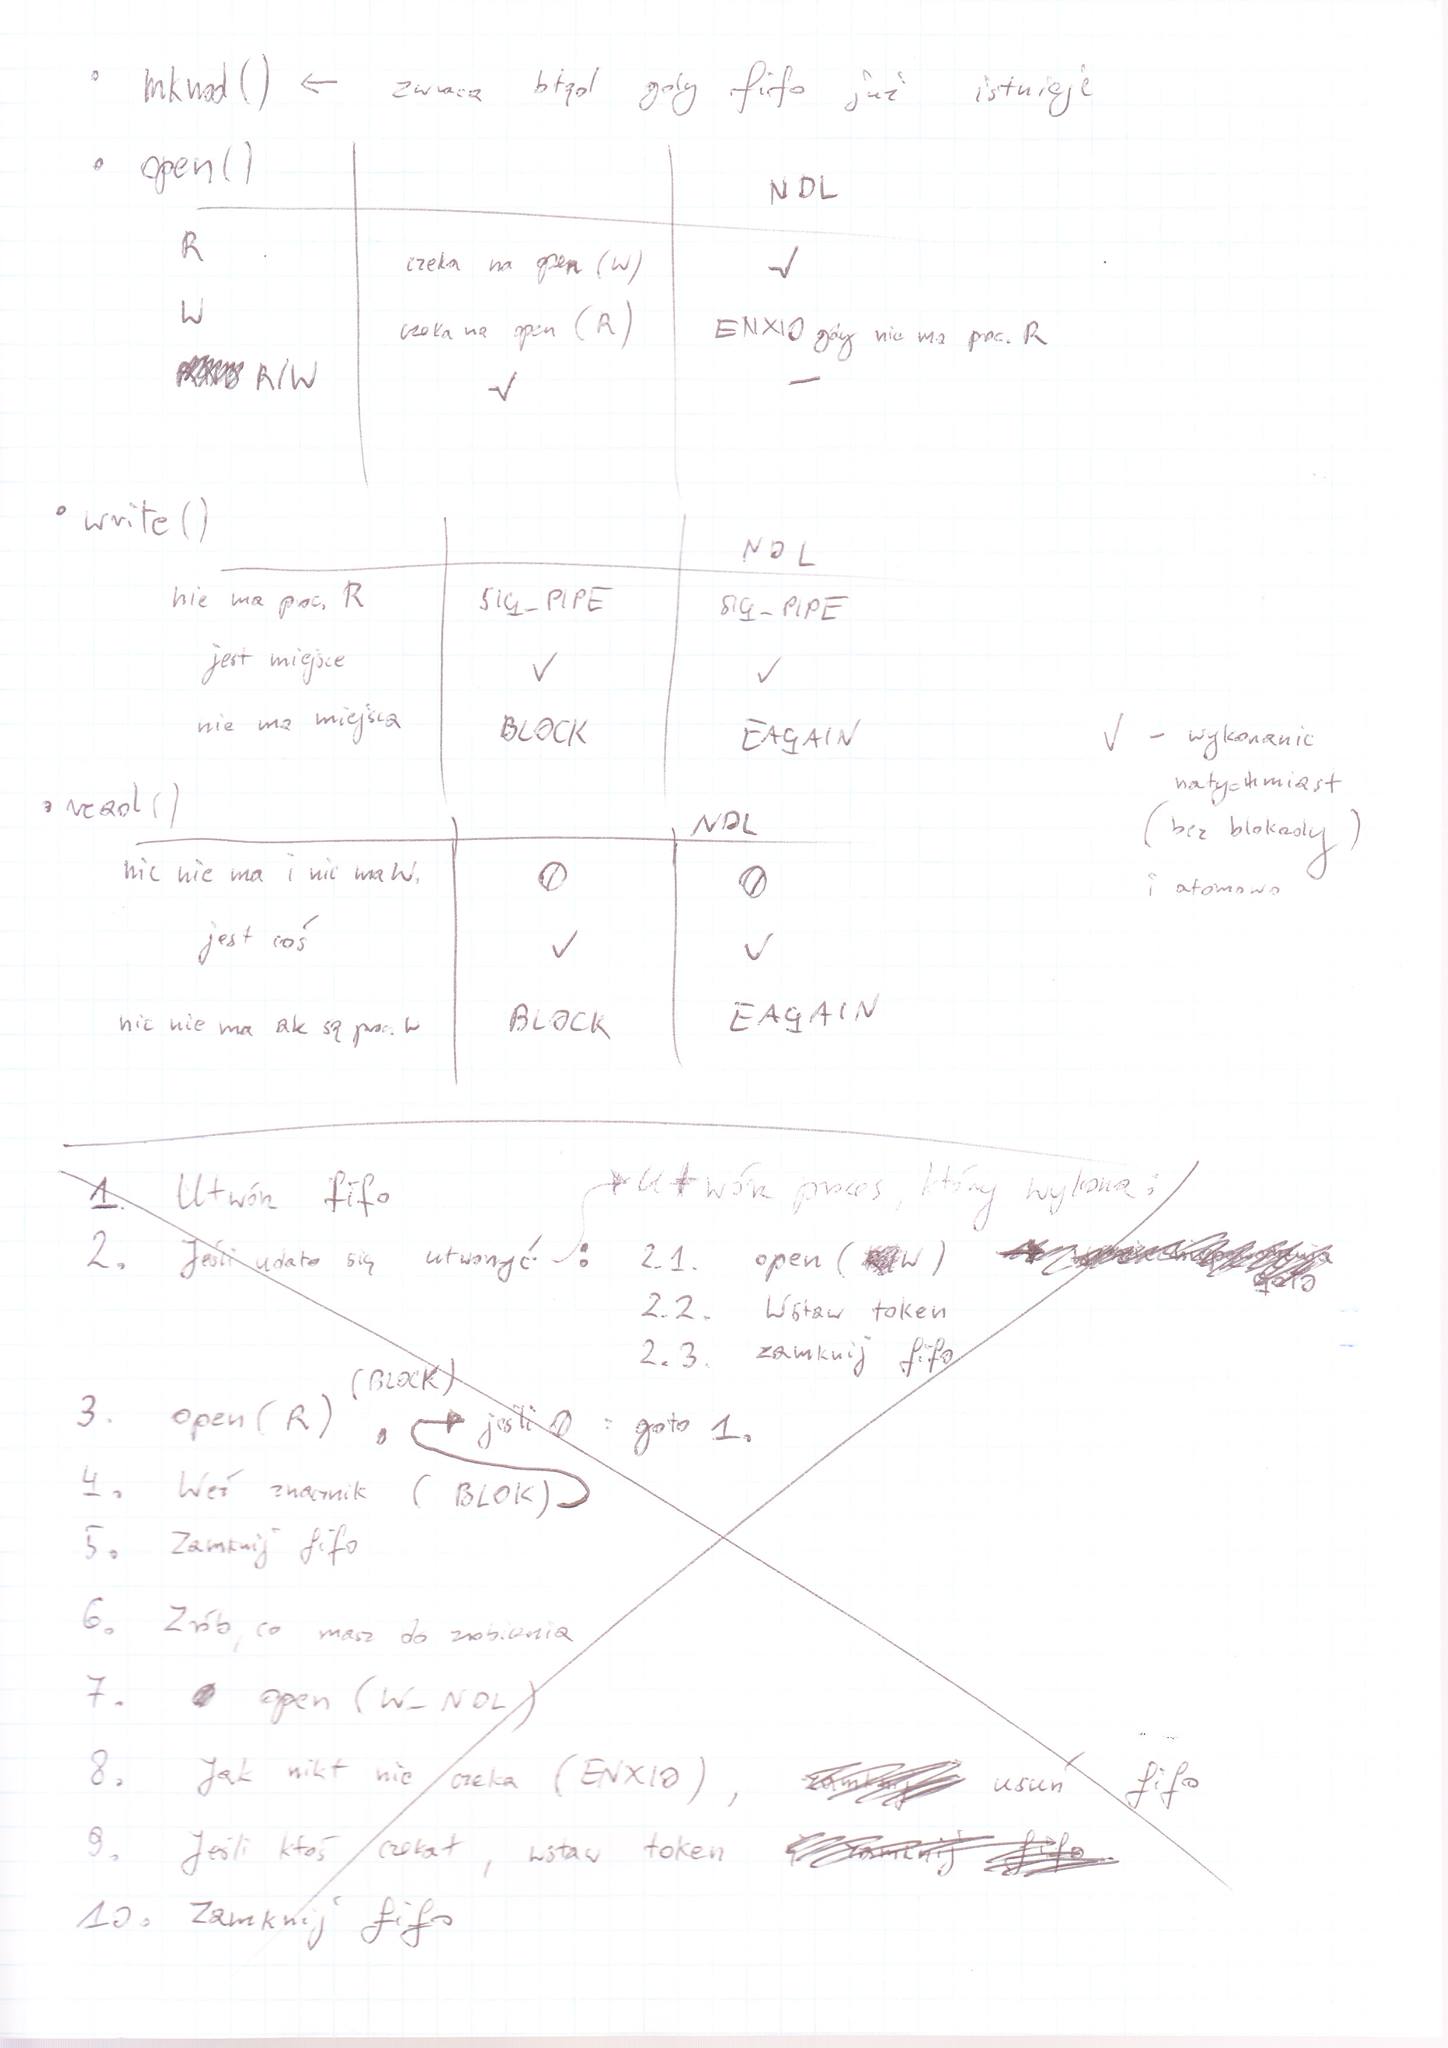 • mknod() ← zwraca błąd gdy fifo już istnieje
• open()
NDL
R czeka na open (W) ✓
W czeka na open (R) ENXIO gdy nie ma proc. R
R/W ✓ —
• write()
NDL
nie ma proc. R SIG_PIPE SIG_PIPE
jest miejsce ✓ ✓
nie ma miejsca BLOCK EAGAIN
✓ - wykonanie
natychmiast
(bez blokady)
i atomowo
• read()
NDL
nic nie ma i nie ma W. 0 0
jest coś ✓ ✓
nic nie ma ale są proc. W BLOCK EAGAIN
1. Utwórz fifo
→ Utwórz proces, który wykona:
2. Jeśli udało się utworzyć: 2.1. open (W)
2.2. Wstaw token
2.3. zamknij fifo
3. open (R) (BLOCK) → jeśli 0 : goto 1.
4. Weź znacznik (BLOK)
5. Zamknij fifo
6. Zrób, co masz do zrobienia
7. open (W_NDL)
8. Jak nikt nie czeka (ENXIO), usuń fifo
9. Jeśli ktoś czekał, wstaw token
10. Zamknij fifo